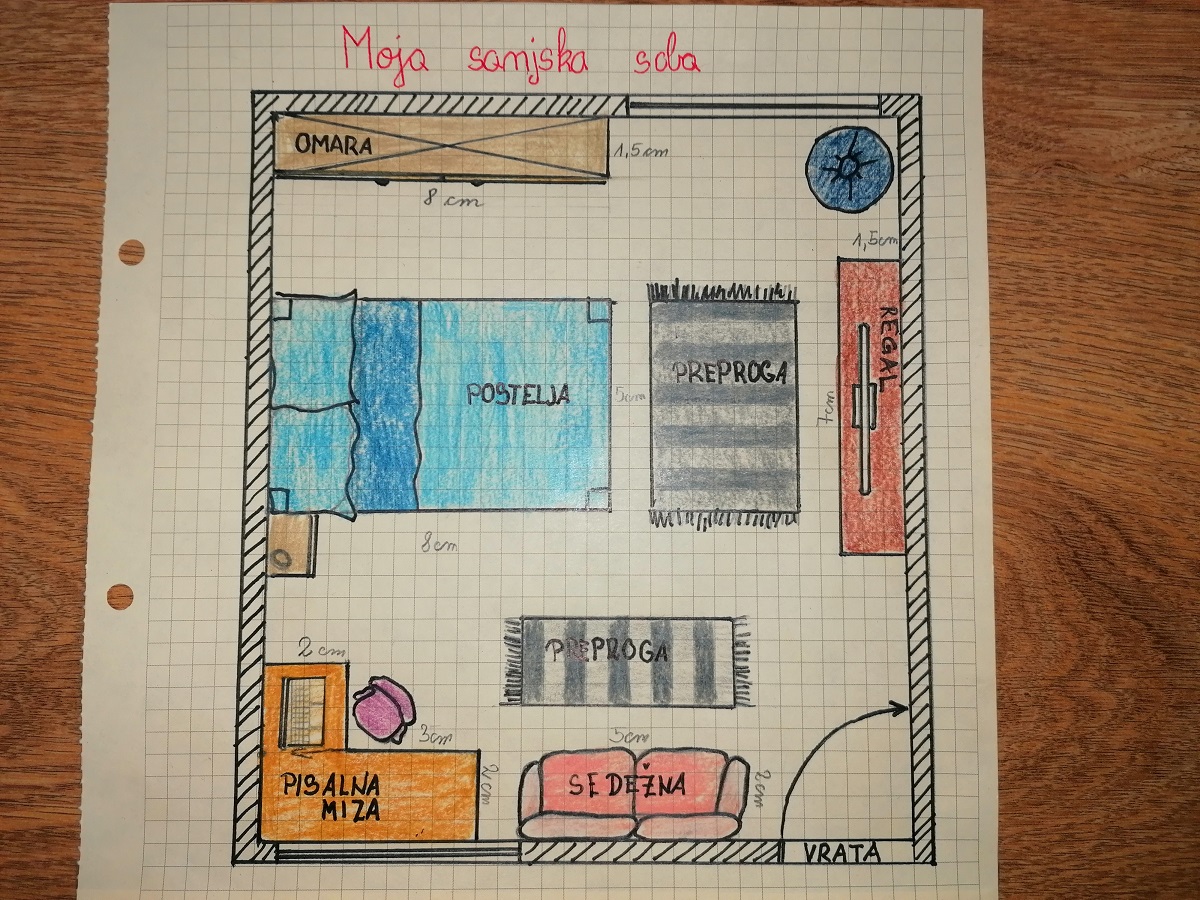 Moja sanjska soba
OMARA
1,5cm
8 cm
1,5cm
REGAL
7cm
POSTELJA
5cm
PREPROGA
8cm
PREPROGA
2 cm
3cm
2cm
PISALNA
MIZA
5cm
SEDEŽNA
2cm
VRATA